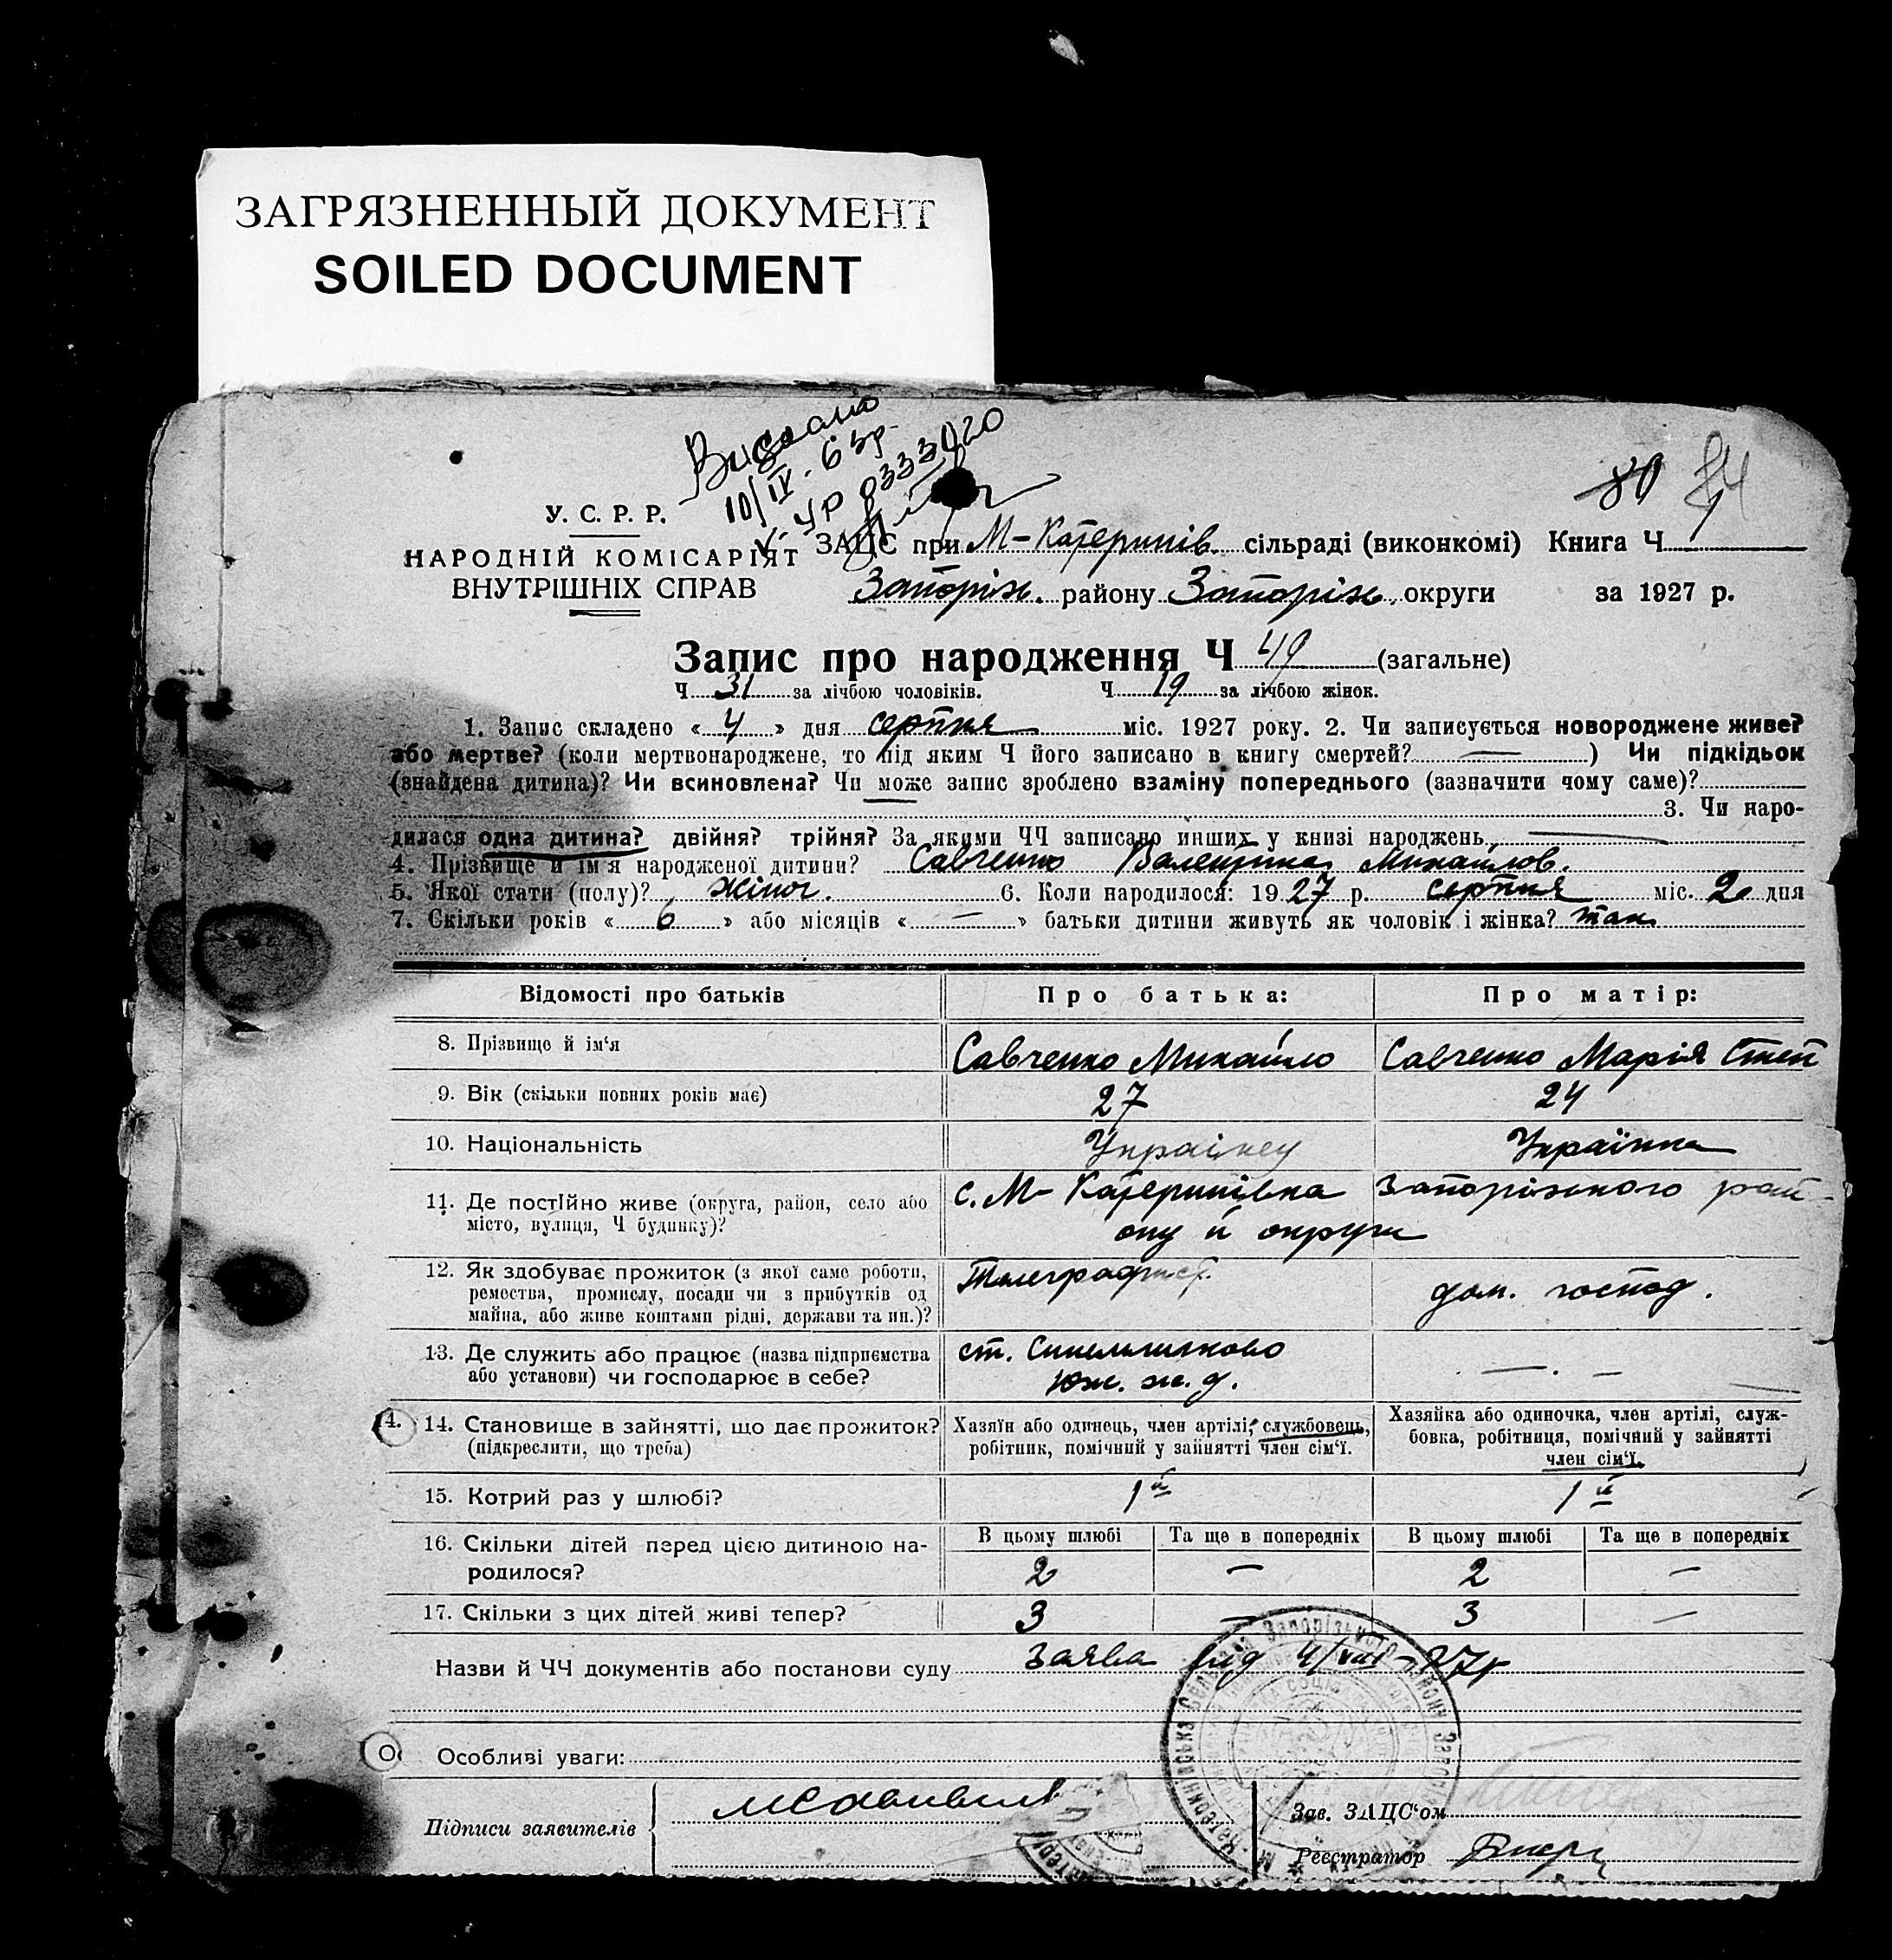 ЗАГРЯЗНЕННЫЙ ДОКУМЕНТ
SOILED DOCUMENT
Видано
10/IV. 63р.
80 84
У. С. Р. Р.
НАРОДНІЙ КОМІСАРІЯТ
ВНУТРІШНІХ СПРАВ
ЗАЦС при М-Катеринів. сільраді (виконкомі) Книга Ч 1
Запоріж. району Запоріж. округи за 1927 р.
Запис про народження Ч 49 (загальне)
Ч 31 за лічбою чоловіків. Ч 19 за лічбою жінок.
1. Запис складено «4» дня серпня міс. 1927 року. 2. Чи записується новороджене живе?
або мертве? (коли мертвонароджене, то під яким Ч його записано в книгу смертей? —) Чи підкідьок
(знайдена дитина)? Чи всиновлена? Чи може запис зроблено взаміну попереднього (зазначити чому саме)?
3. Чи наро-
дилася одна дитина? двійня? трійня? За якими ЧЧ записано инших у книзі народжень, —
4. Прізвище й ім'я народженої дитини? Савченко Валентина Михайлов.
5. Якої стати (полу)? жіноч. 6. Коли народилося: 1927 р. серпня міс. 2 дня
7. Скільки років «6» або місяців «—» батьки дитини живуть як чоловік і жінка? так
Відомості про батьків Про батька: Про матір:
8. Прізвище й ім'я Савченко Михайло Савченко Марія Степ
9. Вік (скільки повних років має) 27 24
10. Національність Українец Українка
11. Де постійно живе (округа, район, село або с. М-Катеринівка Запорізького рай-
місто, вулиця, Ч будинку)? ону й округи
12. Як здобуває прожиток (з якої саме роботи, Телеграфист.
ремества, промислу, посади чи з прибутків од дом. господ.
майна, або живе коштами рідні, держави та ин.)?
13. Де служить або працює (назва підприємства ст. Синельниково — . —
або установи) чи господарює в себе? Юж. ж. д.
14. 14. Становище в зайнятті, що дає прожиток? Хазяїн або одинець, член артілі, службовець, Хазяйка або одиночка, член артілі, служ-
(підкреслити, що треба) робітник, помічний у зайнятті член сім'ї. бовка, робітниця, помічний у зайнятті
член сім'ї.
15. Котрий раз у шлюбі? 1й 1й
16. Скільки дітей перед цією дитиною на- В цьому шлюбі Та ще в попередніх В цьому шлюбі Та ще в попередніх
родилося? 2 — 2 —
17. Скільки з цих дітей живі тепер? 3 — 3 —
Назви й ЧЧ документів або постанови суду заява від 4/VIII-27р
Особливі уваги:
Підписи заявителів
Зав. ЗАЦС'ом
Реєстратор